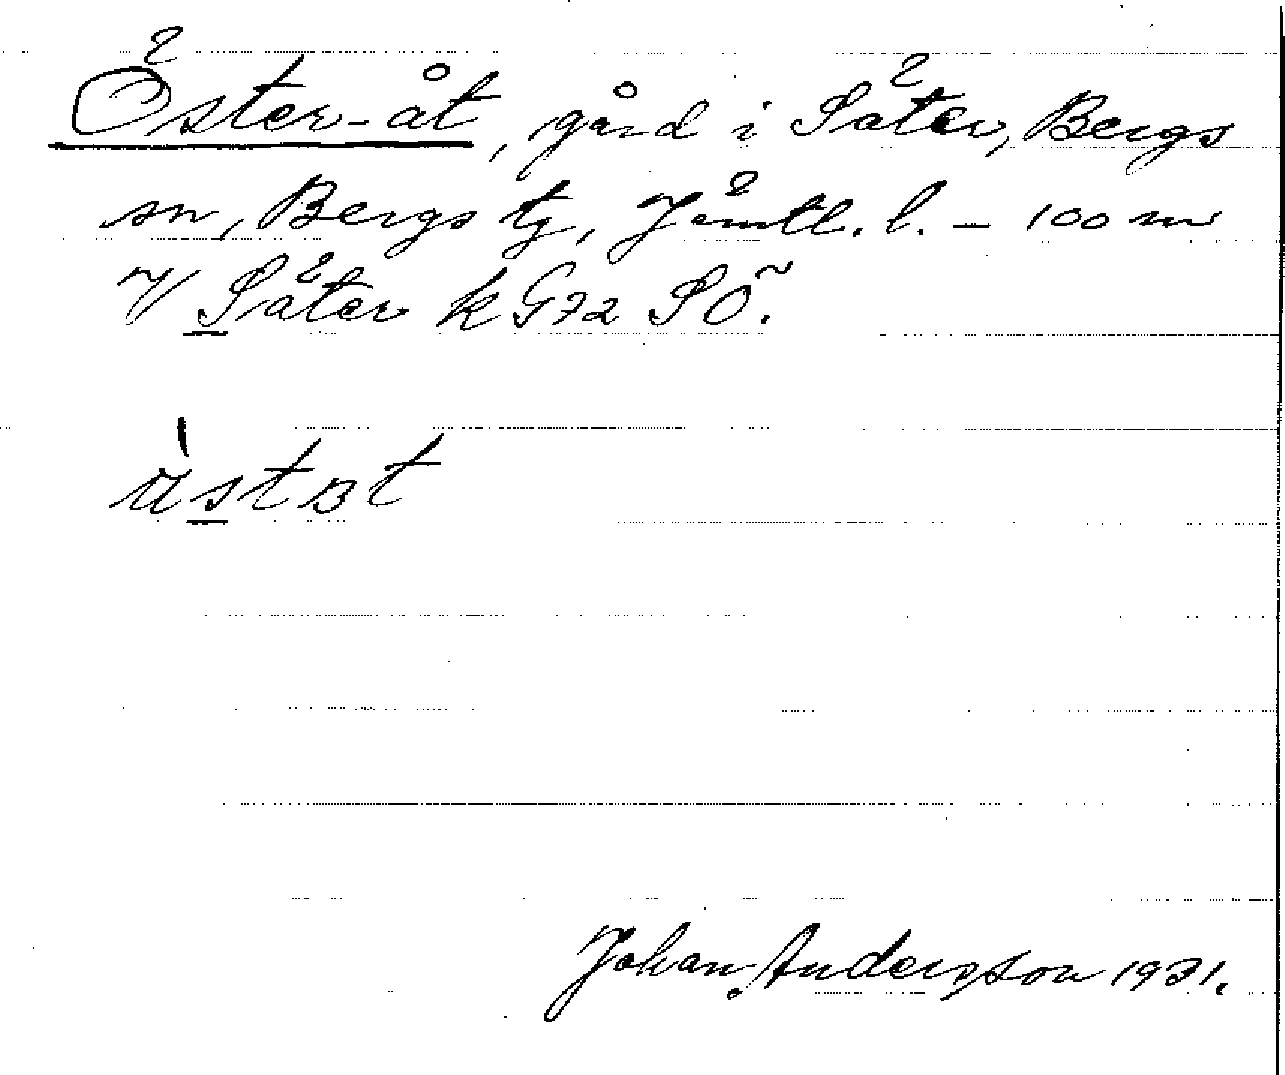 Öster-åt, gård i Säter, Bergs
sn, Bergs tg, Jämtl. l. – 100 m
V Säter k G72 SÖ.
Johan Andersson 1931.